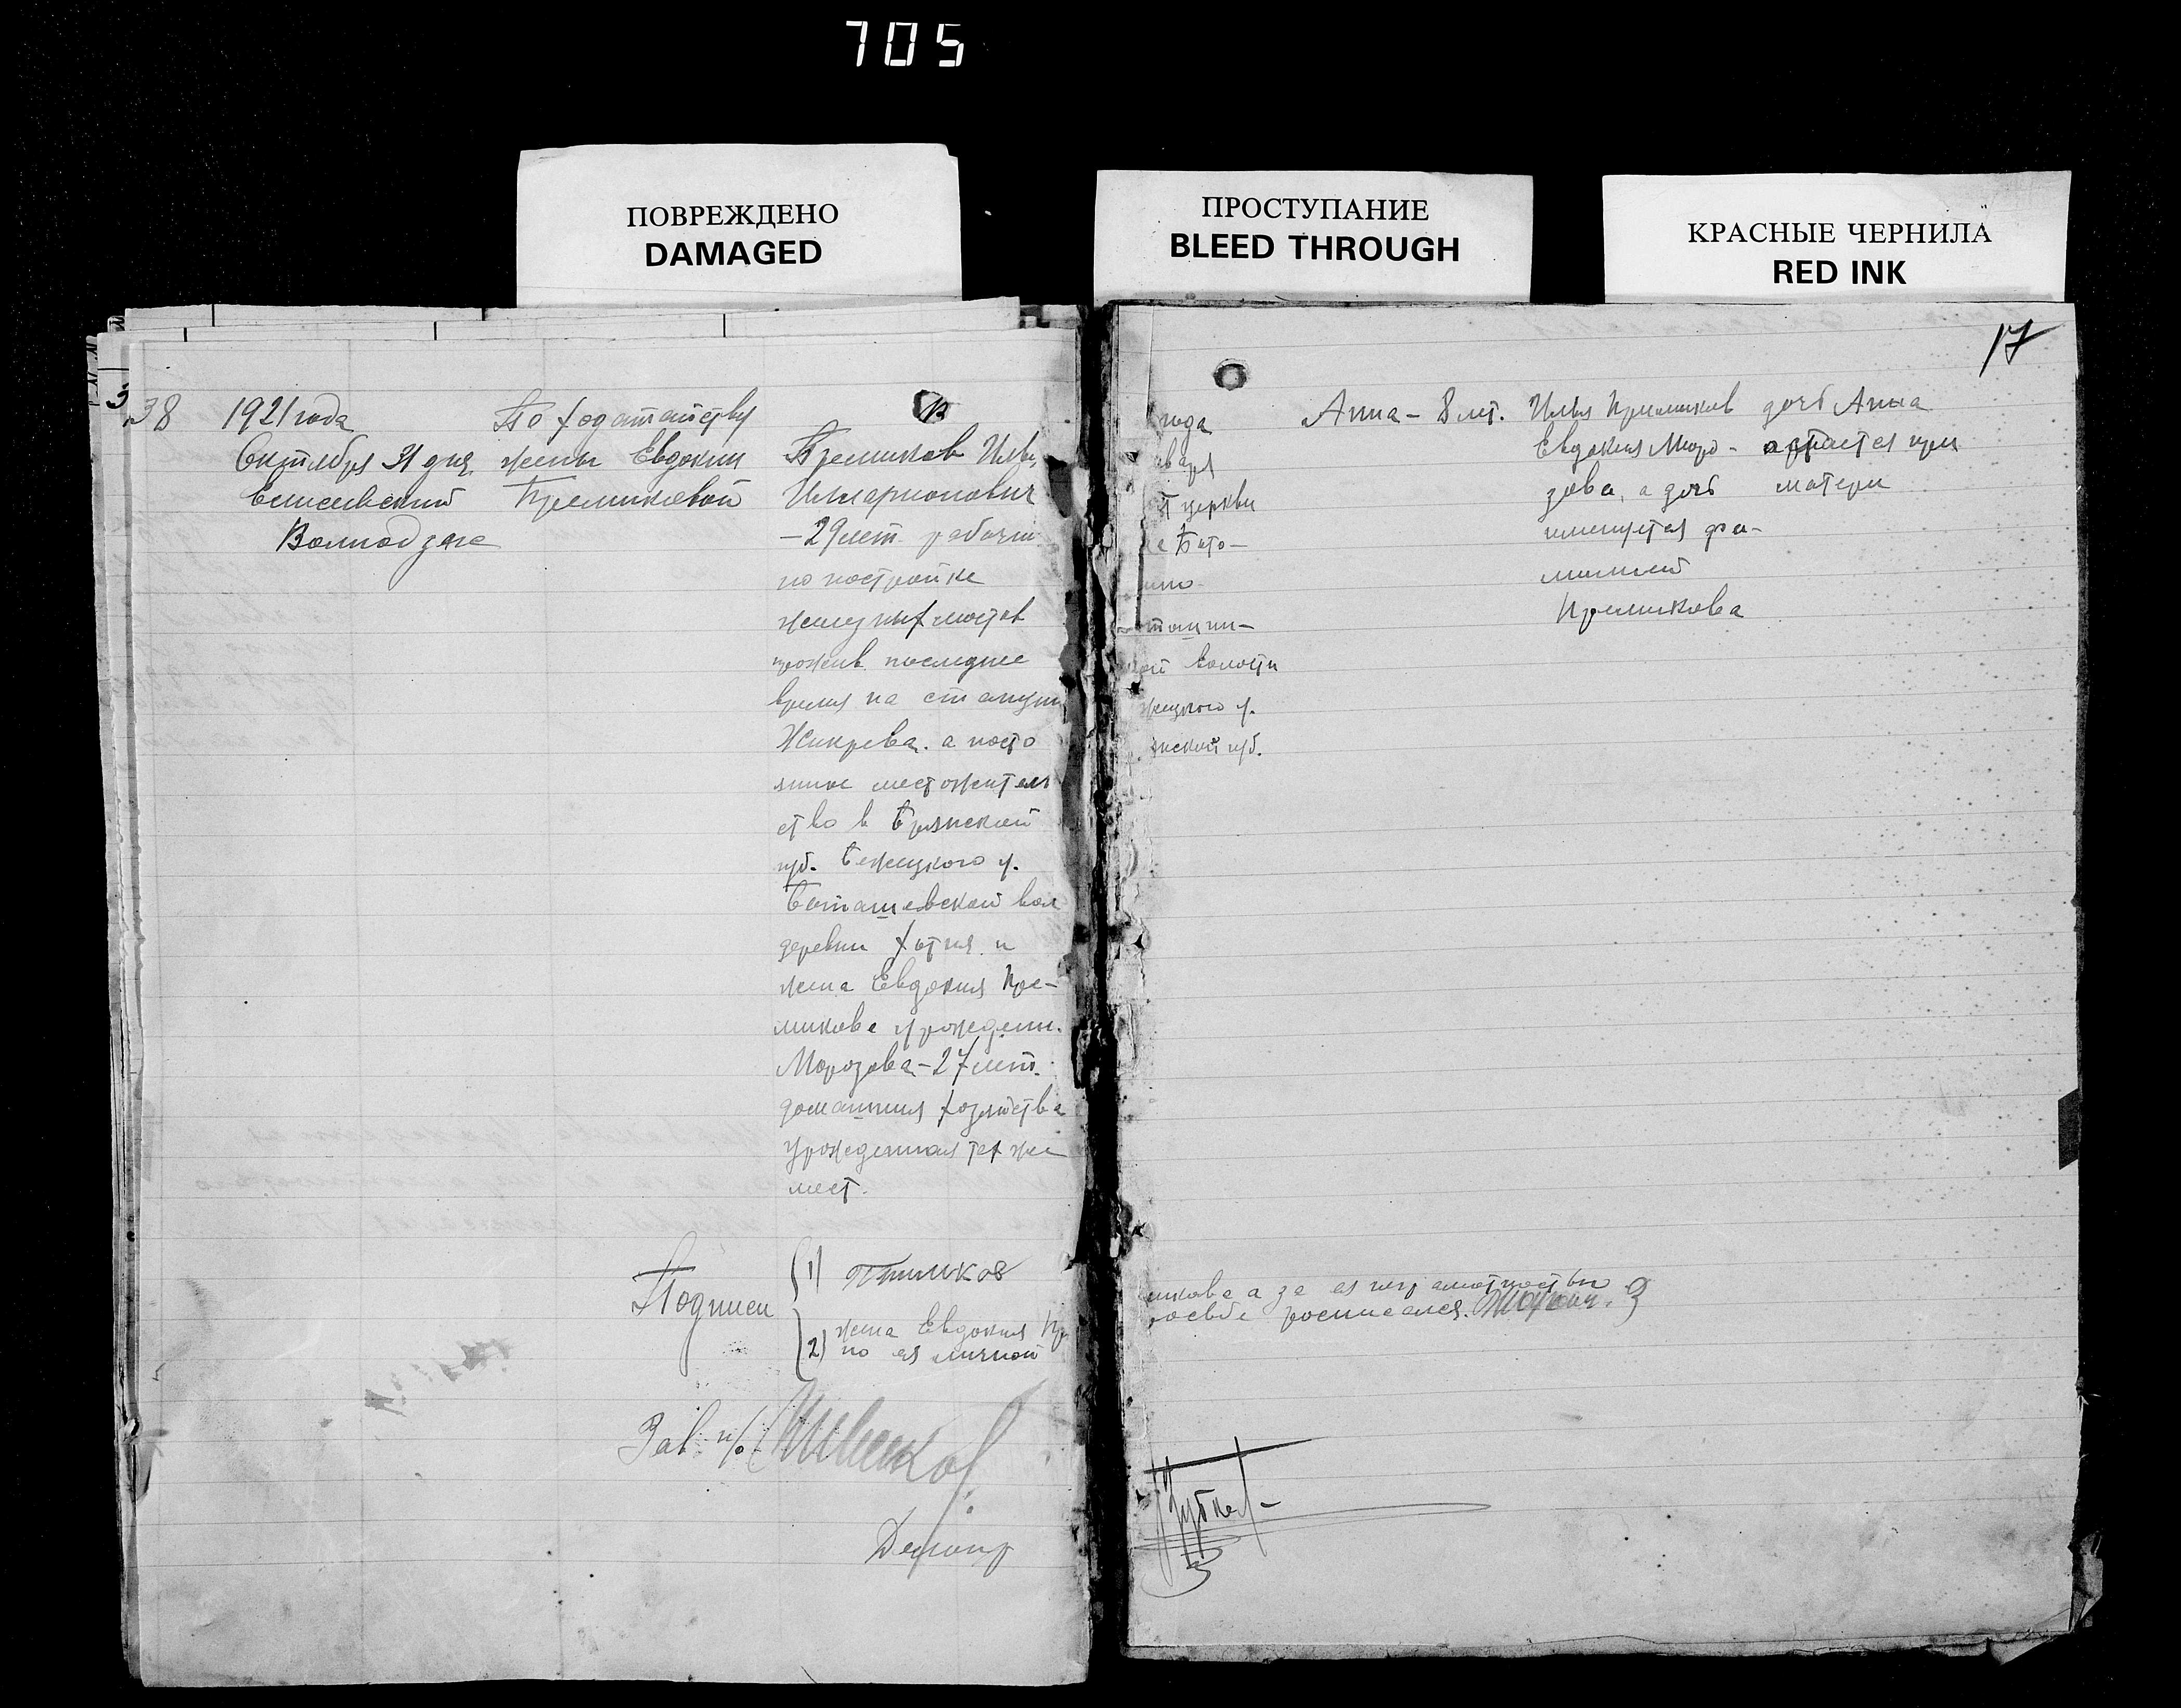 705
ПОВРЕЖДЕНО
DAMAGED
ПРОСТУПАНИЕ
BLEED THROUGH
КРАСНЫЕ ЧЕРНИЛА
RED INK
38
1921 года
Октября 31 дня
Волподзаге
По ходатайству
жены Евдокии
Премиковой
Премиков Илья
Иларионович
- 29 лет рабочий
по постройке
железных мостов
прожив. последнее
время на станции
а посто
янное местожитель
ство в Брянской
губ. Бежицкого у.
Боташевской вол
деревни Хотня и
жена Евдокия Пре-
микова урожденн.
Морозова - 27 лет.
домашния хозяйства
урожденная тех же
мест.
Подписи
1)
2) жена Евдокия Пр
по ея личной
Зав. п/о
17
года
варя
церкви
е Бато-
таши-
ой волости
жецкого у.
янской губ.
Анна - 8 лет.
Илья Премиков
Евдокия Моро-
зова, а дочь
именуется фа-
милией
Премикова
дочь Анна
остается при
матери
микова а за ея неграмотностью
росьбе росписался